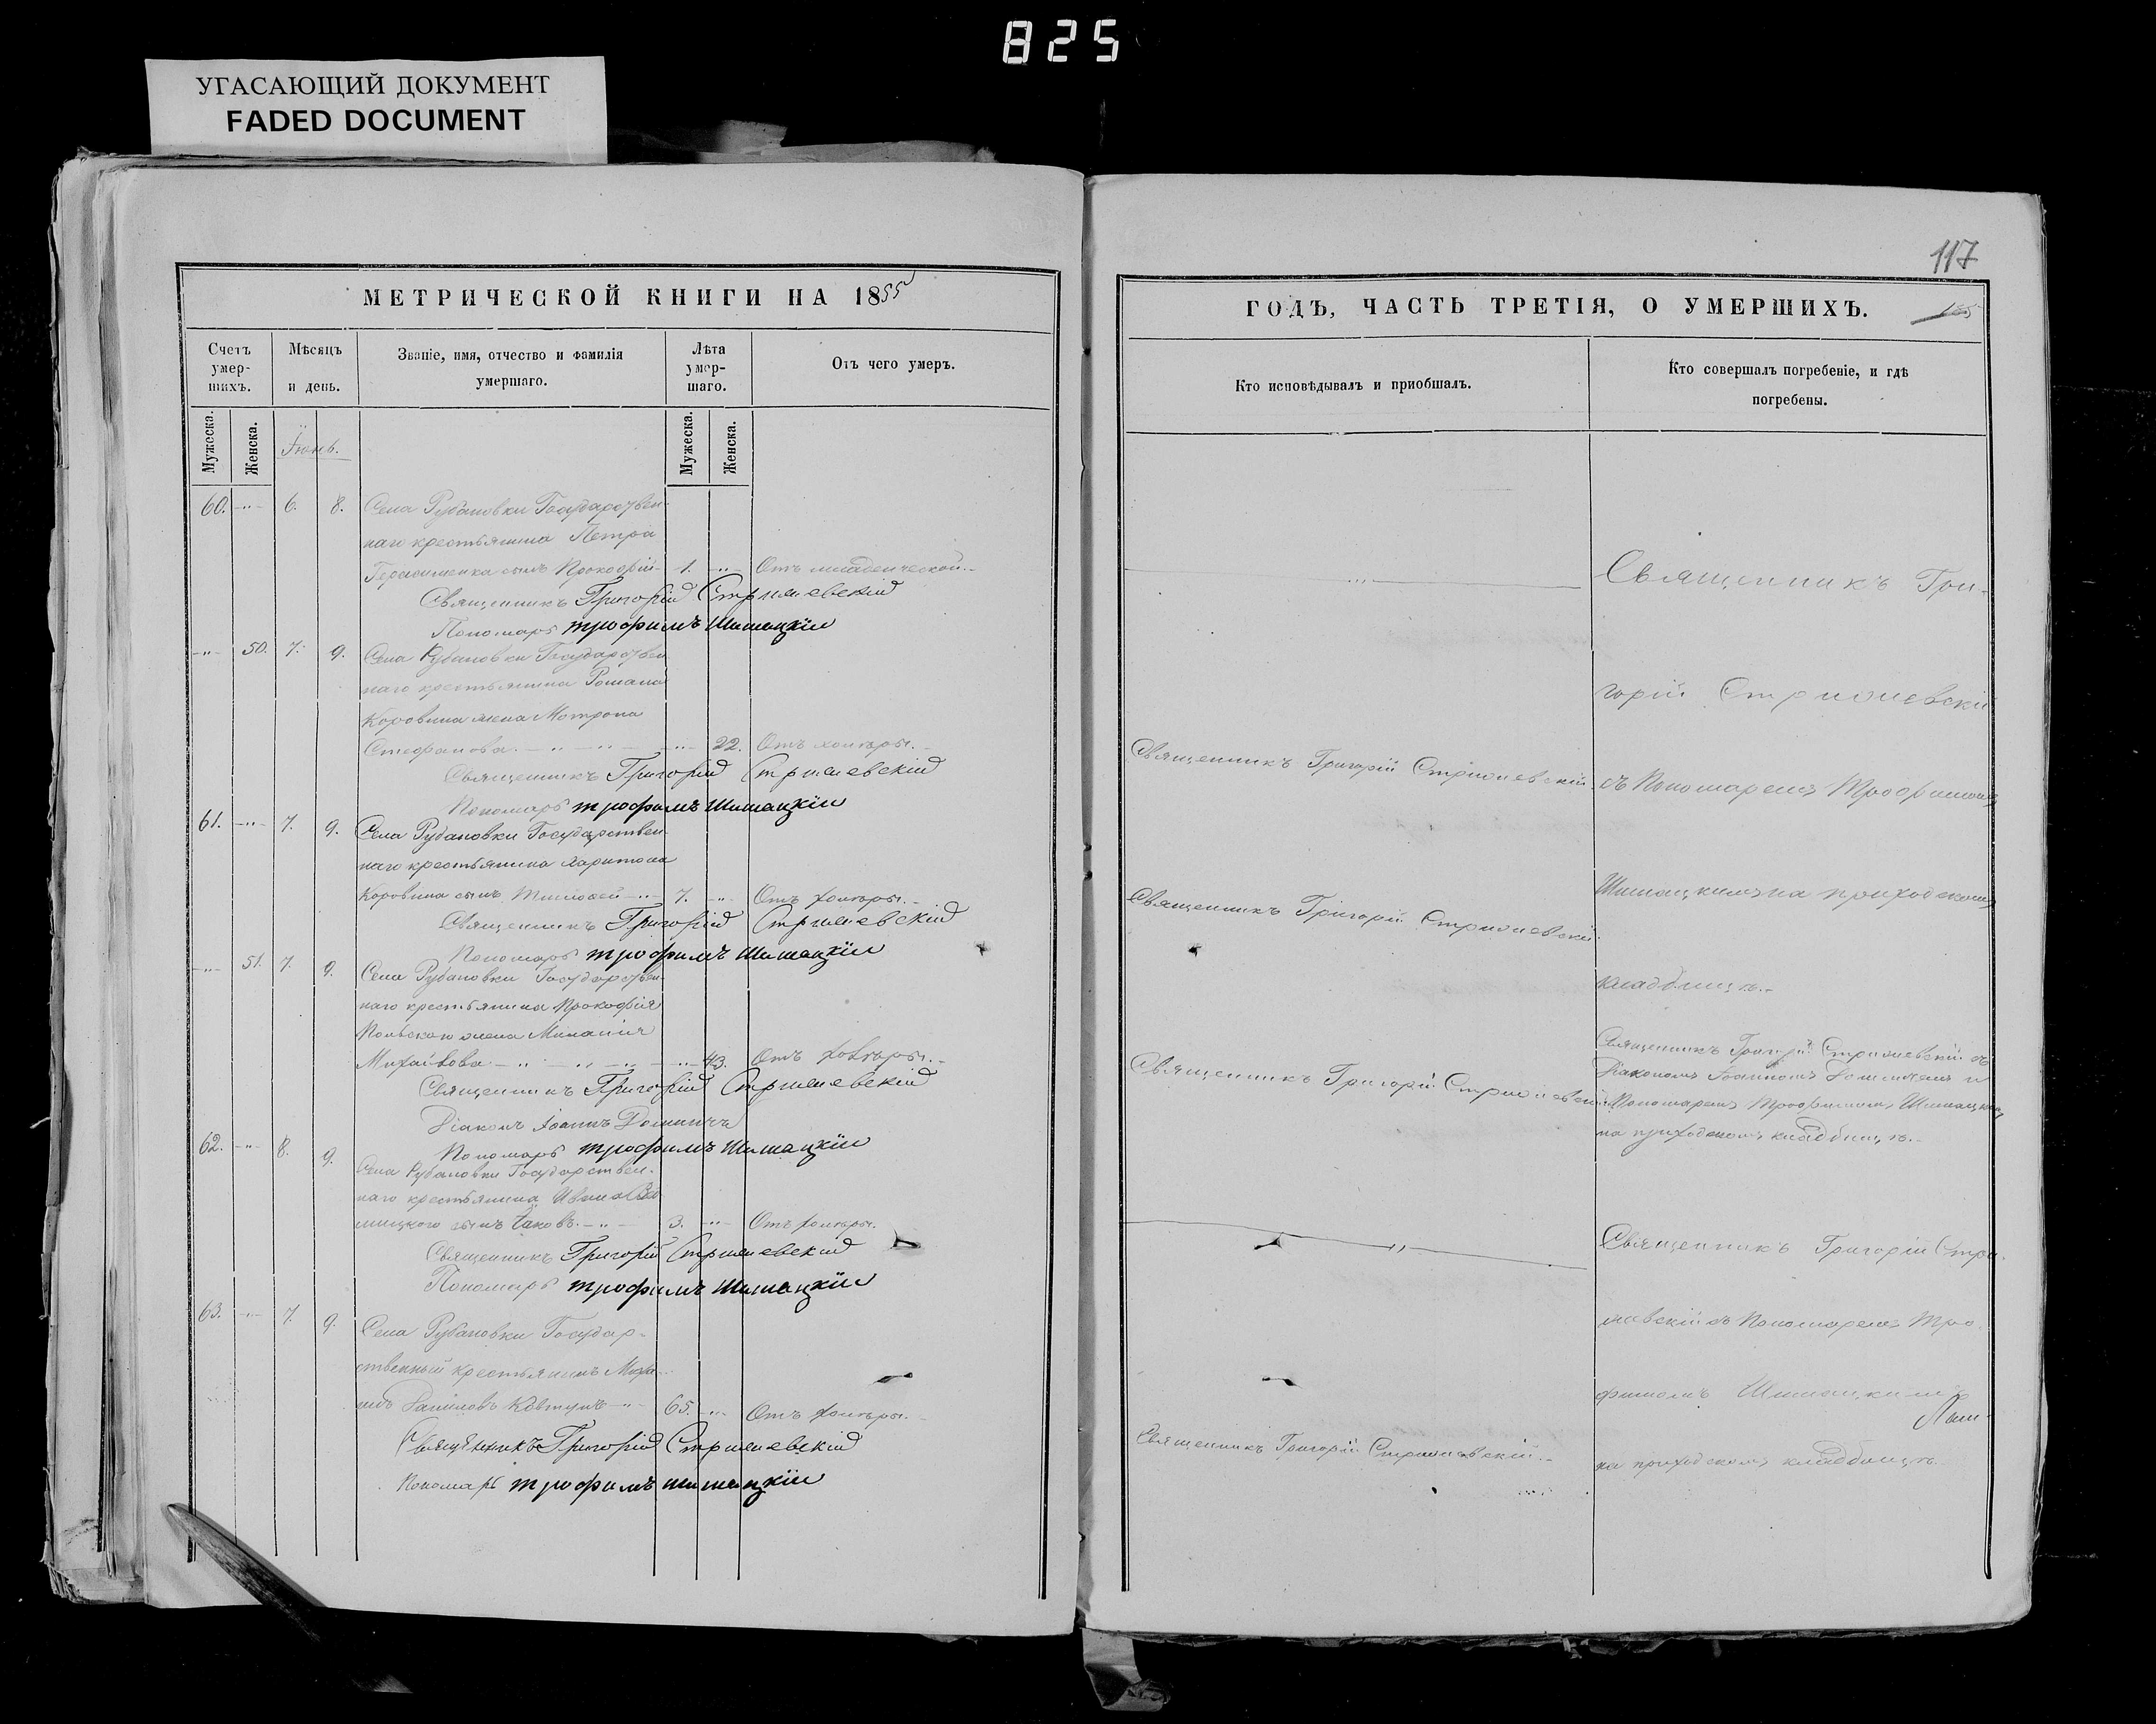 825
УГАСАЮЩИЙ ДОКУМЕНТ
FADED DOCUMENT
МЕТРИЧЕСКОЙ КНИГИ НА 1855
Счетъ умер-шихъ.
Мѣсяцъ и день.
Званіе, имя, отчество и фамилія умершаго.
Лѣта умер-шаго.
Отъ чего умеръ.
Мужеска.
Женска.
Іюнь.
Мужеска.
Женска.
60. -„- 6. 8. Села Рубановки Государствен-
наго крестьянина Петра
Герасименка сынъ Прокофій- 1. -„- Отъ младенческой.-
Священникъ Григорій Стрижевскій
Пономарь трофимъ Шишацкіи
-„- 50. 7. 9. Села Рубановки Государствен
наго крестьянина Романа
Коровина жена Мотрона
Стефанова. - „ - „ - -„- 22. Отъ холѣры.-
Священникъ Григорій Стрижевскій
Пономарь трофимъ Шишацкіи
61. -„- 7. 9. Села Рубановки Государствен-
наго крестьянина Харитона
Коровина сынъ -„- 7. -„- Отъ холѣры.-
Священникъ Григорій Стрижевскій
Пономарь трофимъ Шишацкіи
-„- 51. 7. 9. Села Рубановки Государствен-
наго крестьянина Прокофія
жена
Михайлова - „ - „ - „ - -„- 43. Отъ холѣры.-
Священникъ Григорій Стрижевскій
Діаконъ Іоаннъ
Пономарь трофимъ Шишацкіи
62. -„- 8. 9. Села Рубановки Государствен-
наго крестьянина Ивана
сынъ Іаковъ. -„- 3. -„- Отъ холѣры.
Священникъ Григорій Стрижевскій
Пономарь трофимъ Шишацкіи
63. -„- 7. 9. Села Рубановки Государ-
ственный крестьянинъ Миха-
илъ Даниловъ Ковтунъ -„- 65. -„- Отъ холѣры.-
Священникъ Григорій Стрижевскій
Пономарь трофимъ шишацкіи
117
ГОДЪ, ЧАСТЬ ТРЕТІЯ, О УМЕРШИХЪ.
Кто исповѣдывалъ и пріобщалъ.
Кто совершалъ погребеніе, и гдѣ погребены.
Священникъ Гри-
горій Стрижевскій
Священникъ Григорій Стрижевскій.
съ Пономаремъ Трофимомъ
Священникъ Григорій Стрижевскій.
Шишацкимъ на приходскомъ
кладбищѣ.-
Священникъ Григорій Стрижевскій
Священникъ Григорій Стрижевскій съ
Діакономъ Іоанномъ и
Пономаремъ Трофимомъ Шишацкимъ
на приходскомъ кладбищѣ.-
Священникъ Григорій Стри-
жевскій съ Пономаремъ Тро-
фимомъ Шишацкимъ
Священникъ Григорій Стрижевскій.-
на приходскомъ кладбищѣ.